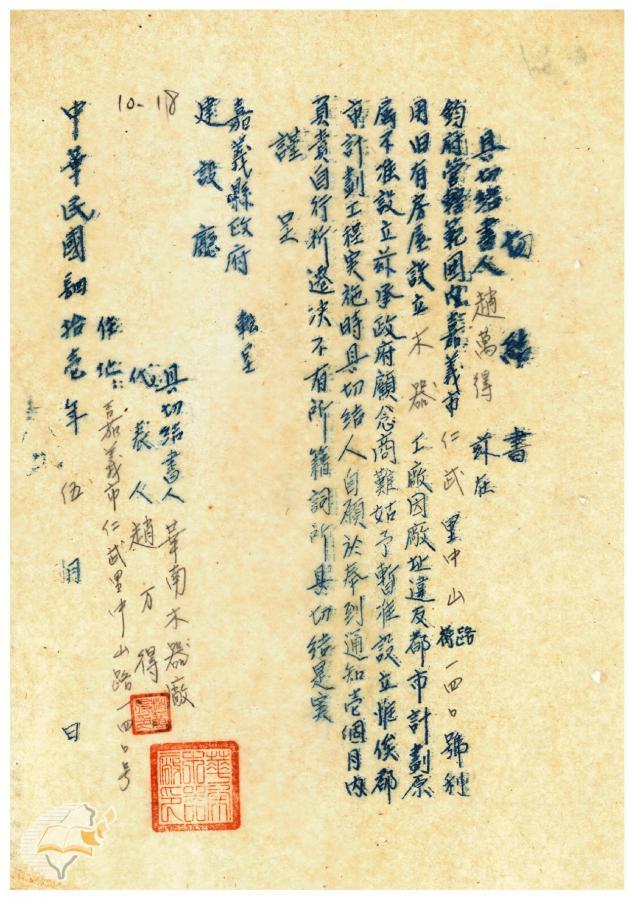 切結書
具切結書人 趙萬得 茲在
鈞府管轄範圍內嘉義市仁武里中山路一四〇號利
用旧有房屋設立木器工廠因廠址違反都市計劃原
屬不准設立茲承政府顧念商難姑予暫准設立惟俟都
市計劃工程实施時具切結人自願於奉到通知壱個月內
負責自行拆遷決不有所籍詞所具切結是实
謹呈
嘉義縣政府 轉呈
建設廳
10-18
具切結書人 華南木器廠
代表人 趙万得
住址:嘉義市仁武里中山路一四〇号
中華民國肆拾壱年伍月 日